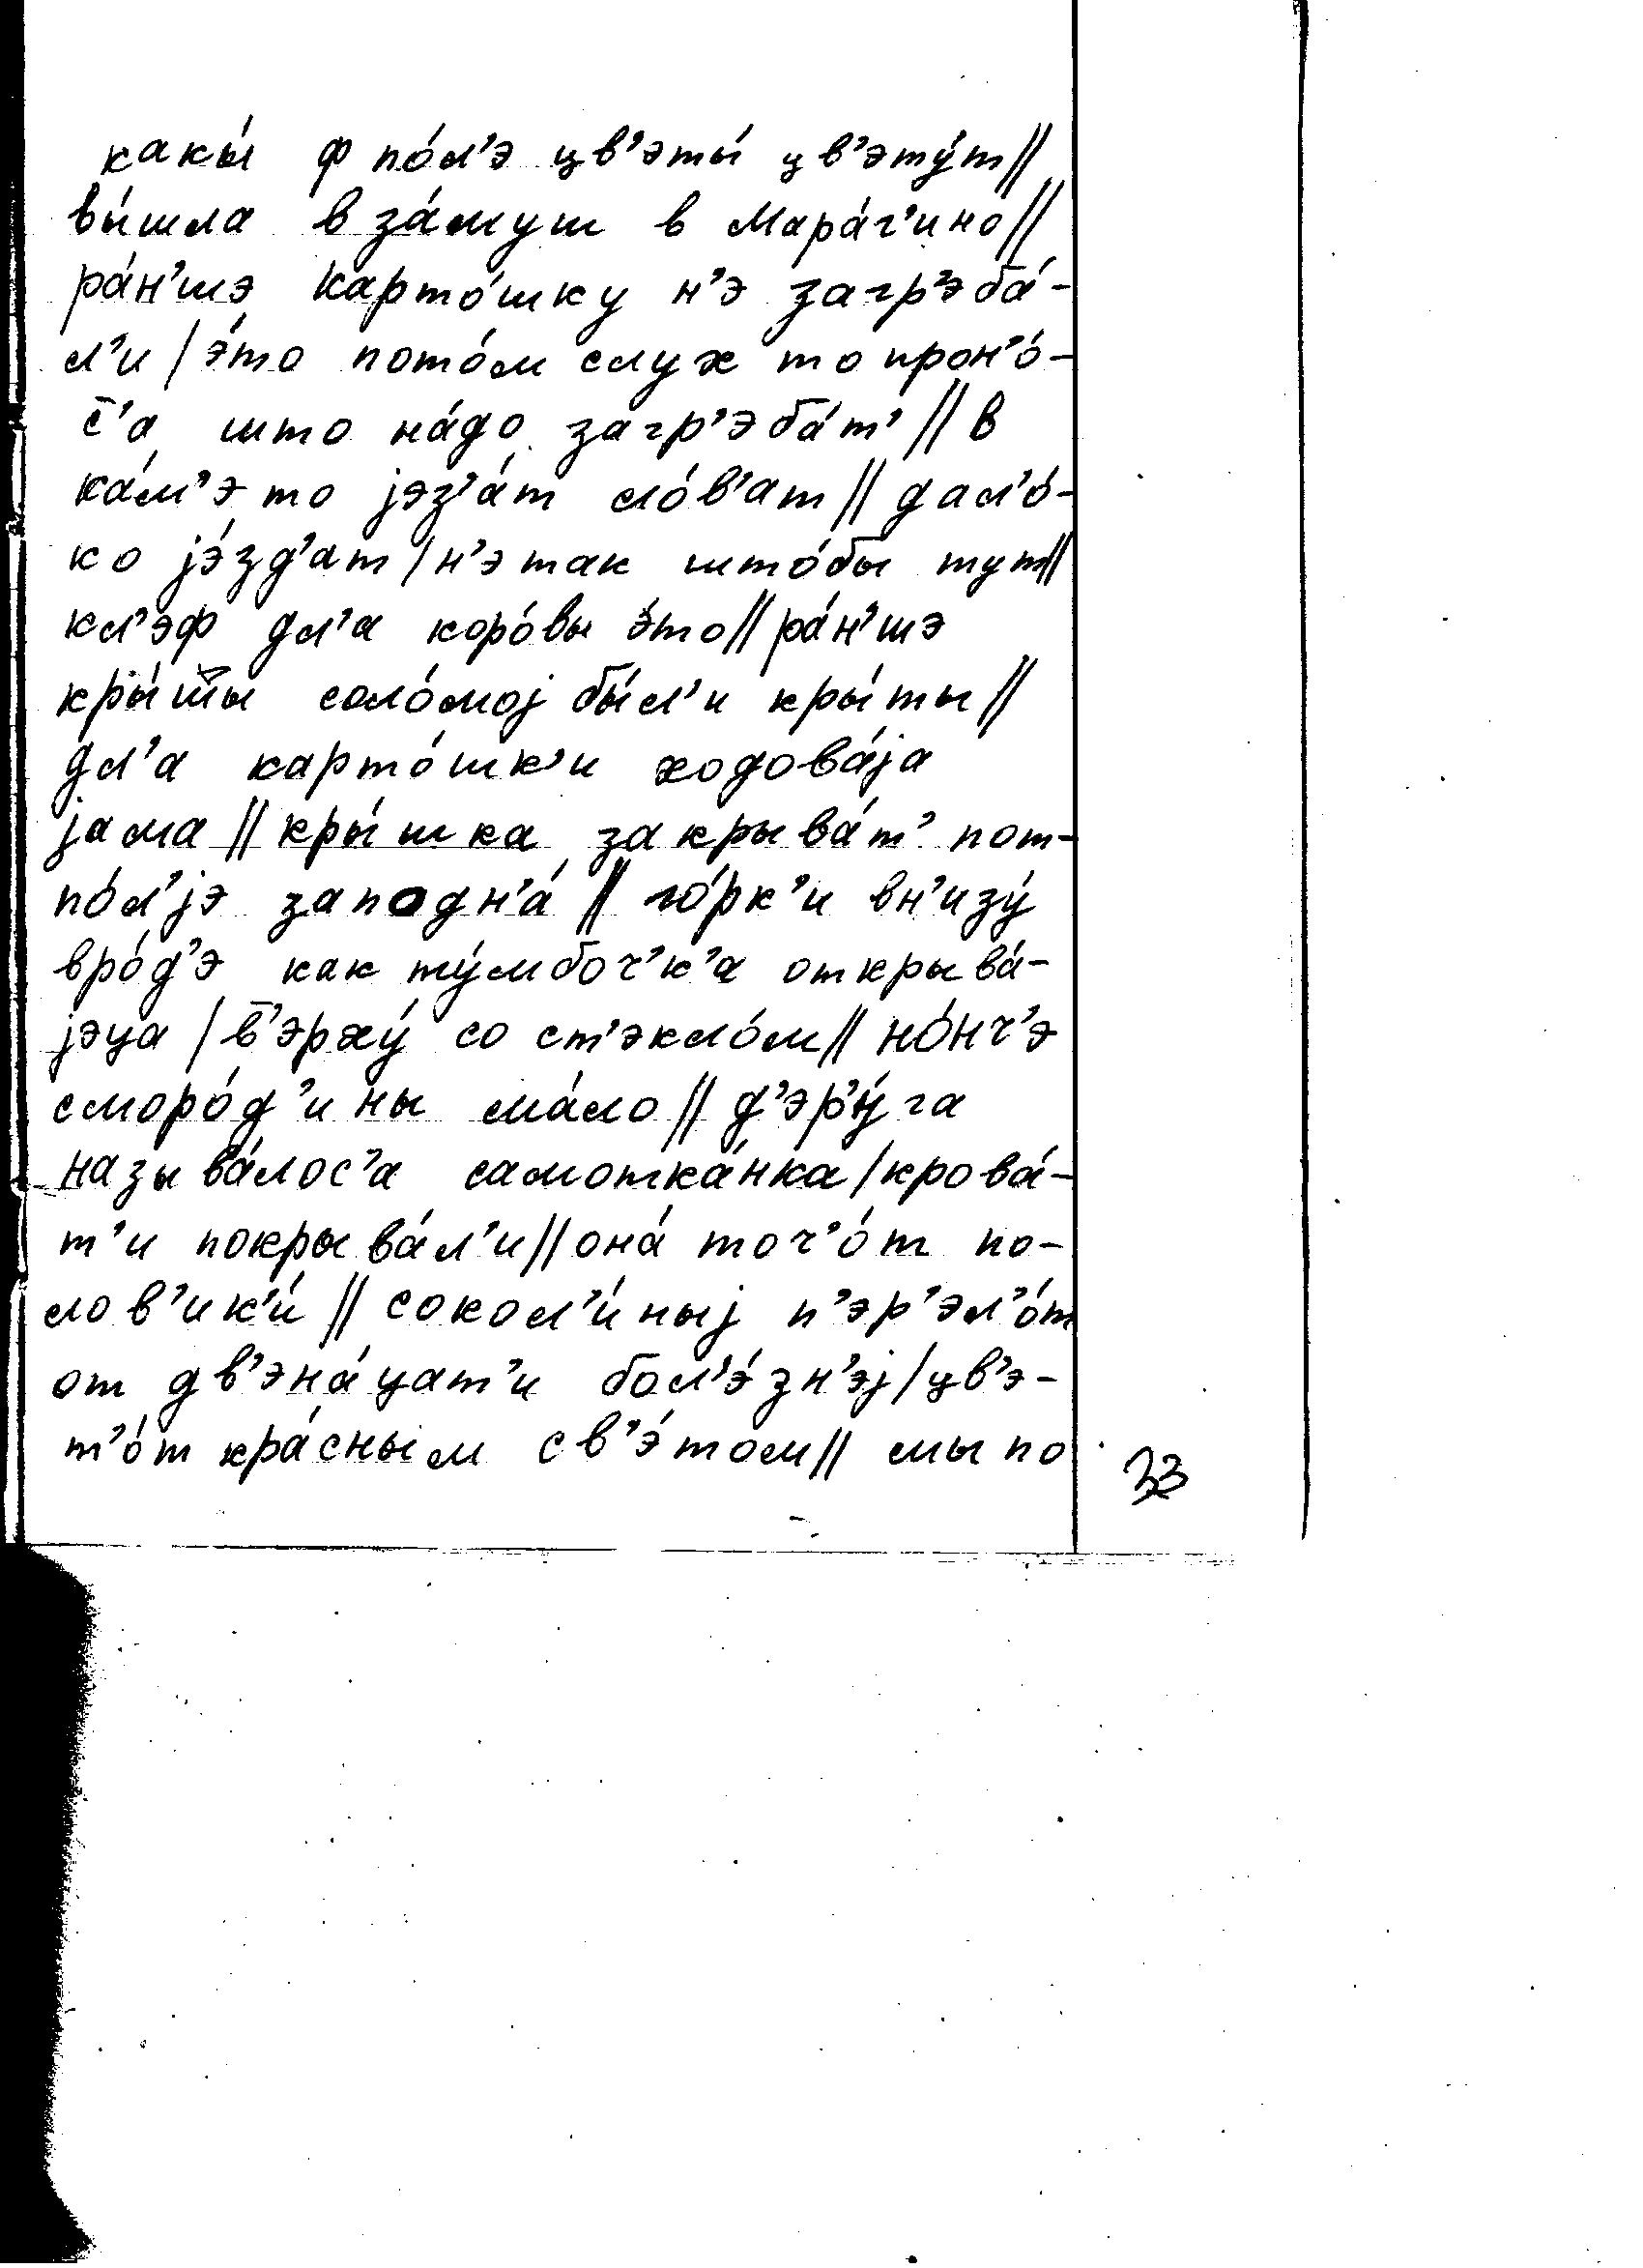 какы́ ф по́л’э цв’эты́ цв’эту́т//
вы́шла в за́муш в Мара́г’ино//
ра́н’шэ карто́шку н’э загр’эба́-
л’и / э́то пото́м слух то прон’о́-
с̄’а што на́до загр’эба́т’ // в
ка́м’э то jэз’а́т ло́в’ат // дал’о́-
ко jэ́зд’ат / н’э так што́бы тут//
хл’эф дл’а коро́вы э́то // ра́н’шэ
соло́моj бы́л’и кры́ты //
дл’а карто́шк’и ходова́jа
jама // кры́шка закрыва́т’ пот-
по́л’jэ западн’а́ // го́рк’и вн’изу́
вро́д’э как ту́мбоч’к’а открыва́-
jэца / в̄’эрху́ со ст’экло́м // но́нч’э
сморо́д’ины ма́ло // д’эр’у́га
называ́лос’а самотка́нка / крова́-
т’и покрыва́л’и // она́ точ’о́т по-
лов’ик’и́ // сокол’и́ныj п’эр’эл’о́т
от дв’эна́цат’и бол’э́зн’эj / цв’э-
т’о́т кра́сным св’э́том // мы по
33